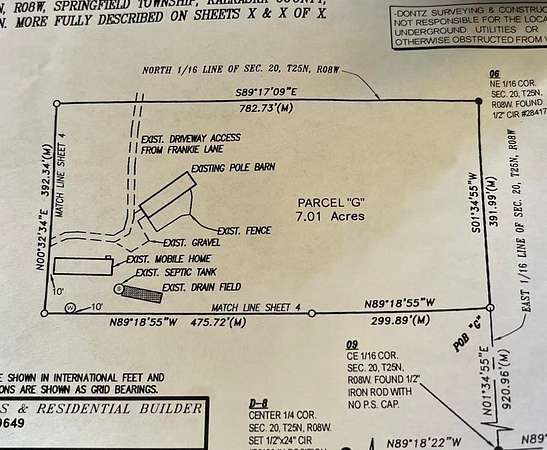 N, R08W, SPRINGFIELD TOWNSHIP, KALKASKA COUNTY,
N. MORE FULLY DESCRIBED ON SHEETS X & X OF X
-DONTZ SURVEYING & CONSTRUC
NOT RESPONSIBLE FOR THE LOCA
UNDERGROUND UTILITIES OR
OTHERWISE OBSTRUCTED FROM V
NORTH 1/16 LINE OF SEC. 20, T25N, R08W
S89°17'09"E
782.73'(M)
06
NE 1/16 COR.
SEC. 20, T25N,
R08W. FOUND
1/2" CIR #28417
392.34'(M)
N00°32'34"E
MATCH LINE SHEET 4
EXIST. DRIVEWAY ACCESS
FROM FRANKIE LANE
EXISTING POLE BARN
PARCEL "G"
7.01 Acres
S01°34'55"W
391.99'(M)
EAST 1/16 LINE OF SEC. 20, T25N, R08W
EXIST. FENCE
EXIST. GRAVEL
EXIST. MOBILE HOME
EXIST. SEPTIC TANK
EXIST. DRAIN FIELD
10'
W
10'
MATCH LINE SHEET 4
N89°18'55"W
475.72'(M)
N89°18'55"W
299.89'(M)
POB "G"
N01°34'55"E
920.96'(M)
09
CE 1/16 COR.
SEC. 20, T25N,
R08W. FOUND 1/2"
IRON ROD WITH
NO P.S. CAP.
E SHOWN IN INTERNATIONAL FEET AND
IONS ARE SHOWN AS GRID BEARINGS.
S & RESIDENTIAL BUILDER
9649
D-8
CENTER 1/4 COR.
SEC. 20, T25N, R08W.
SET 1/2"x24" CIR
N89°18'22"W
N89°